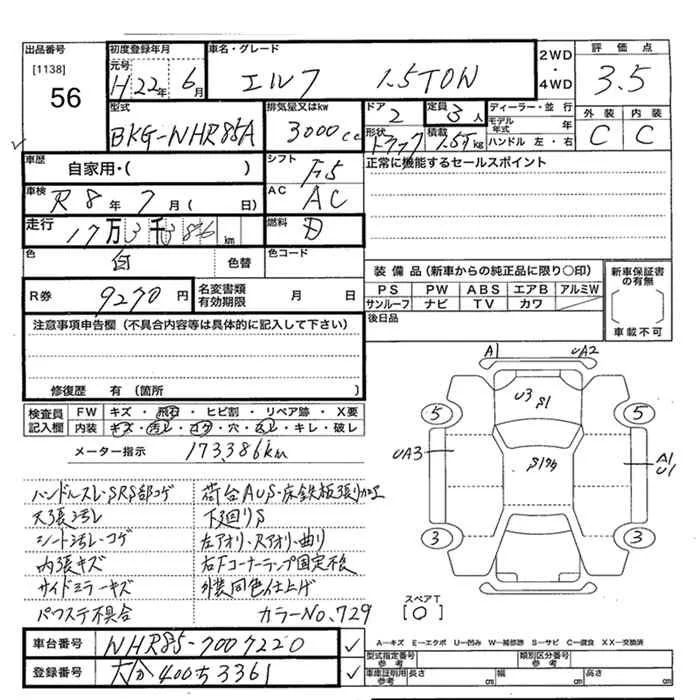 出品番号
[1138]
56
初度登録年月
元号
H22年 6月
車名・グレード
エルフ 1.5TON
2WD
・
4WD
評価点
3.5
型式
BKG-NHR85A
排気量又はkw
3000cc
ドア
2
定員
3人
形状
トラック
積載
1.5T kg
ディーラー・並行
モデル年式 年
ハンドル 左・右
外装 内装
C C
車歴
自家用・( )
シフト
F5
正常に機能するセールスポイント
車検
R8年 7月( 日)
AC
AC
走行
17万3千386km
燃料
D
色
白 色替
色コード
R券 9270円
名変書類
有効期限 月 日
装備品(新車からの純正品に限り○印)
PS PW ABS エアB アルミW
サンルーフ ナビ TV カワ
新車保証書
の有無
車載不可
後日品
注意事項申告欄(不具合内容等は具体的に記入して下さい)
修復歴 有(箇所 )
検査員
記入欄
FW キズ・飛石・ヒビ割・リペア跡・X要
内装 キズ・汚レ・コゲ・穴・返し・キレ・破レ
メーター指示 173,386km
ハンドルスレ・SRS部コゲ
天張汚レ
シート汚レ・コゲ
内張キズ
サイドミラーキズ
パワステ不具合
荷台AUS・床鉄板張り加工
下廻りS
左アオリ・Rアオリ・曲り
右下コーナーランプ固定不良
外装同色仕上げ
カラーNo,729
A1 UA2
U3 S1
5 5
UA3
A1
U1
3 3
スペアT
[0]
車台番号 NHR85-7007220
登録番号 大分400ち3361
A—キズ E—エクボ U—凹み W—補修跡 S—サビ C—腐食 XX—交換済
型式指定番号
参考
類別区分番号
参考
車庫証明用
参考
長さ cm 幅 cm 高さ cm